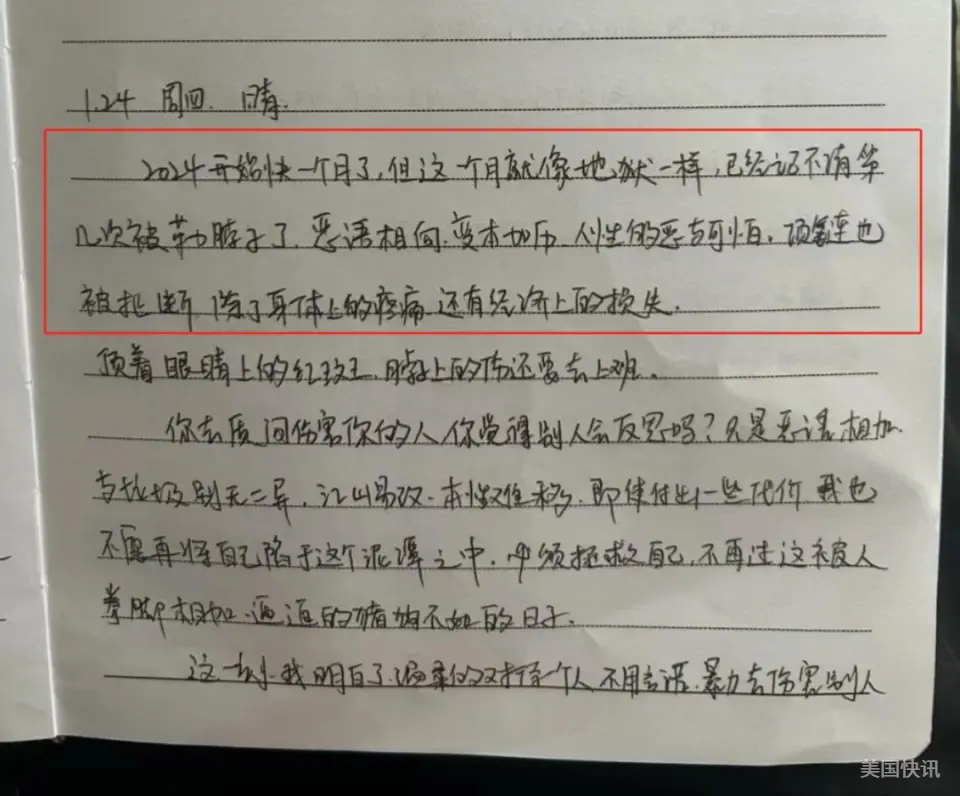 1.24 周四. 晴.
2024开始快一个月了,但这一个月就像地狱一样,已经记不清第
几次被勒脖子了.恶语相向.变本加厉 人性的恶去可怕.项链也
被扯断 除了身体上的疼痛 还有经济上的损失.
顶着眼睛上的红斑、脖子上的伤还要去上班.
你去质问伤害你的人你觉得别人会反思吗?只是恶语相加
与垃圾别无二异.江山易改.本性难移.即使付出一些代价 我也
不愿再将自己陷于这个泥潭之中.必须拯救自己.不再过这被人
拳脚相加.逼迫的猪狗不如的日子.
这一刻.我明白了.温柔的对待一个人 不用言语.暴力去伤害别人
美国快讯